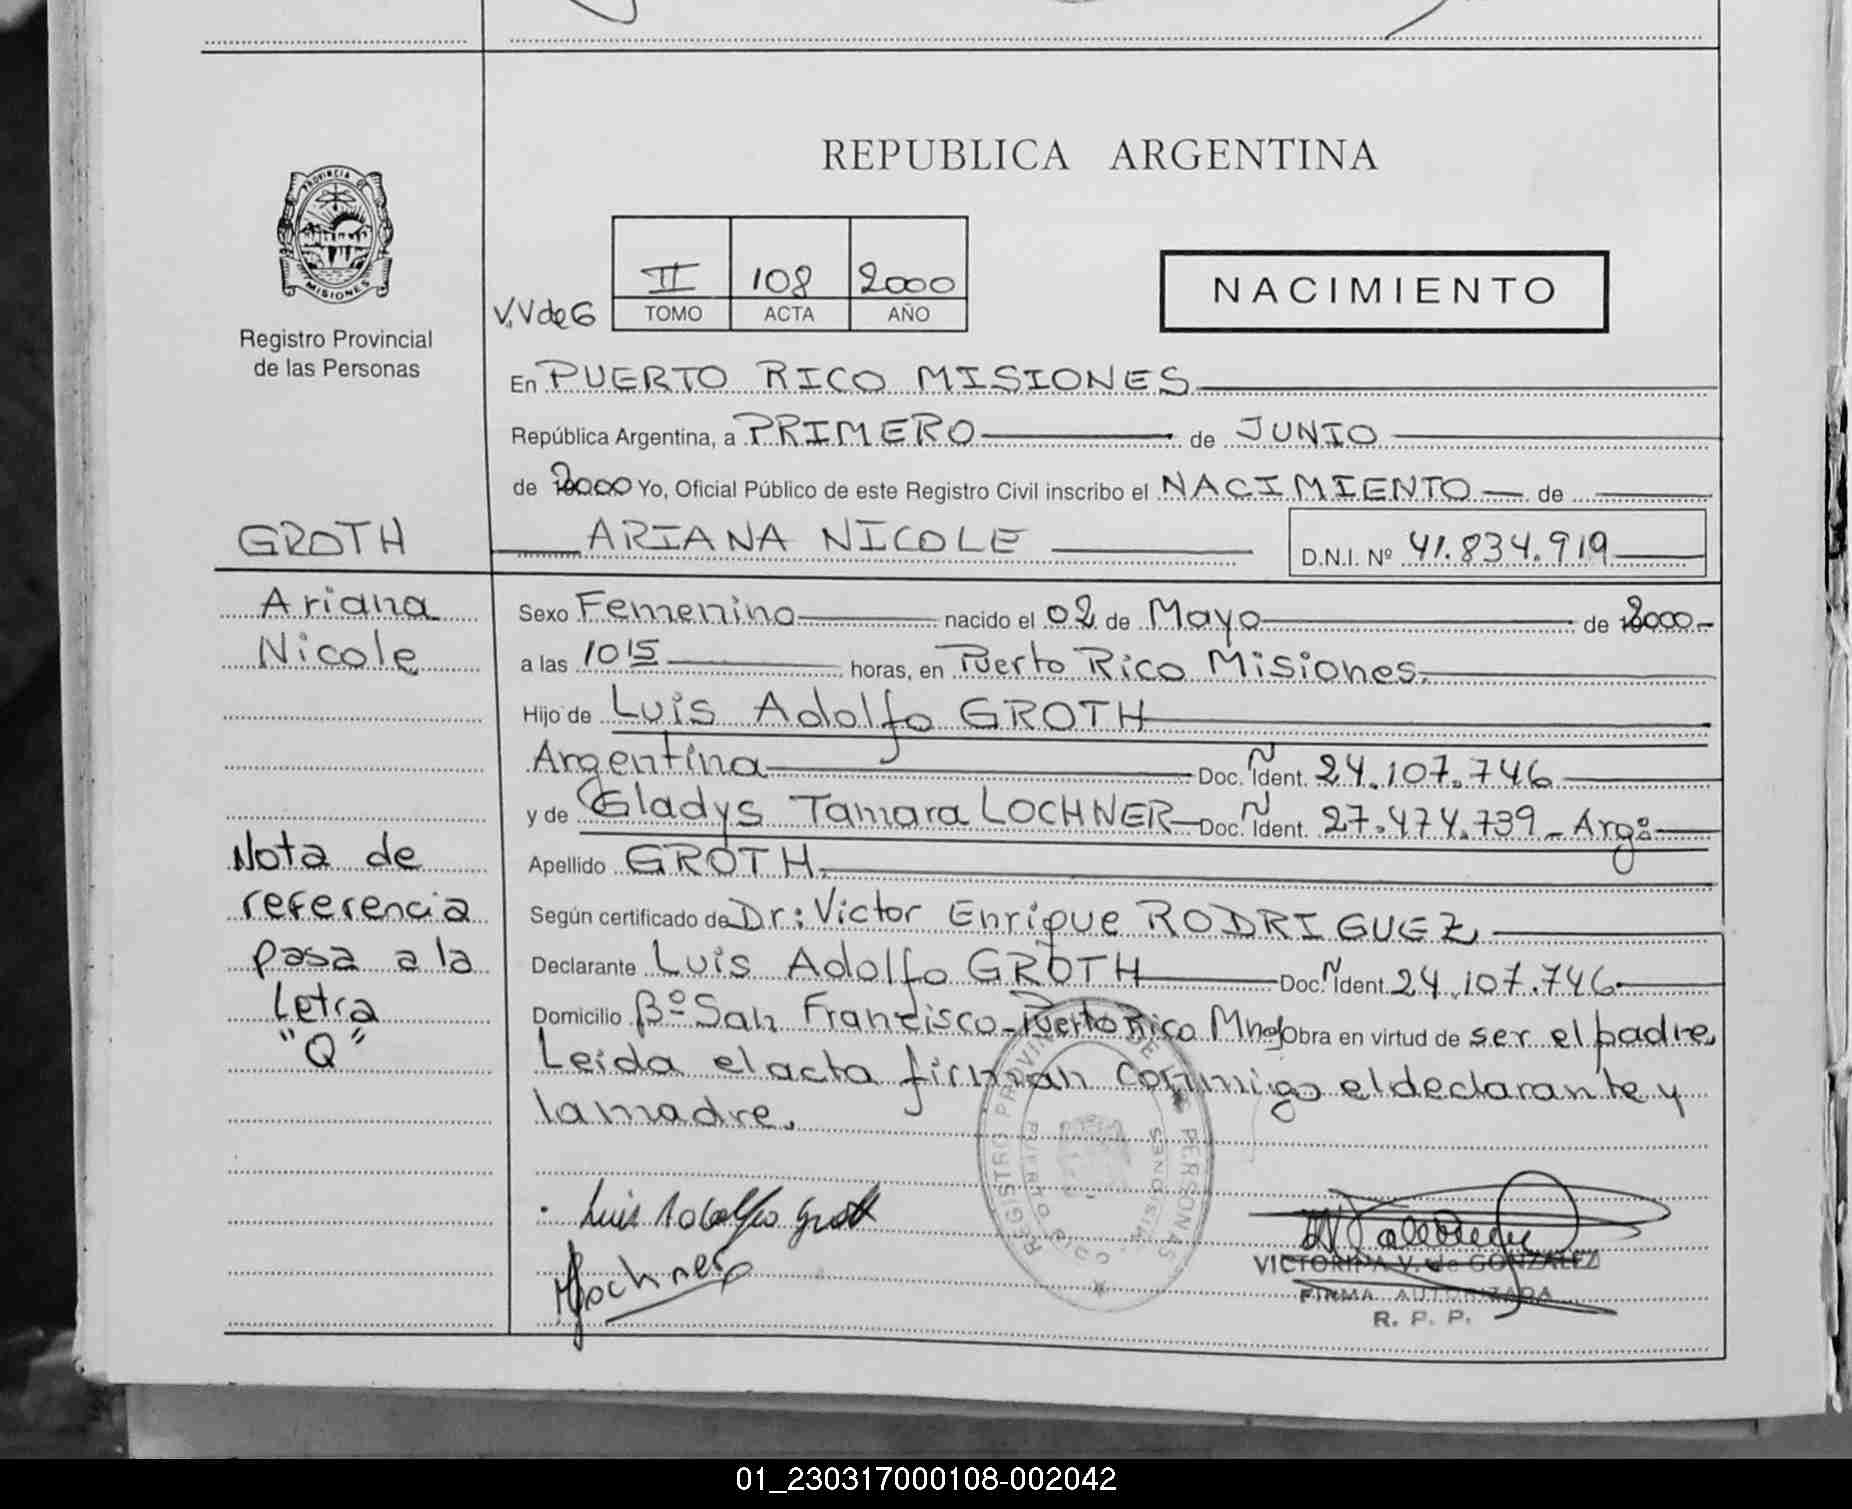 REPUBLICA ARGENTINA
PROVINCIA DE
MISIONES
Registro Provincial
de las Personas
V.V de G
II 108 2000
TOMO ACTA AÑO
NACIMIENTO
En PUERTO RICO MISIONES
República Argentina, a PRIMERO de JUNIO
de 2000 Yo, Oficial Público de este Registro Civil inscribo el NACIMIENTO de
ARIANA NICOLE
D.N.I. Nº 41.834.919
Sexo Femenino nacido el 02 de Mayo de 2000
a las 10 15 horas, en Puerto Rico Misiones.
Hijo de Luis Adolfo GROTH
Argentina Doc. N Ident. 24.107.746
y de Gladys Tamara LOCHNER Doc. N Ident. 27.474.739 - Arg:
Apellido GROTH.
Según certificado de Dr: Victor Enrique RODRIGUEZ
Declarante Luis Adolfo GROTH Doc. N Ident. 24.107.746
Domicilio Bº San Francisco - Puerto Rico Mnes Obra en virtud de ser el padre.
Leida el acta firman conmigo el declarante y
la madre.
GROTH
Ariana
Nicole
Nota de
referencia
pasa a la
Letra
"Q"
Luis Adolfo Groth
Lochner
REGISTRO PROVINCIAL DE PERSONAS
MISIONES
VICTORIPA V. de GONZALEZ
FIRMA AUTORIZADA
R. P. P.
01_230317000108-002042